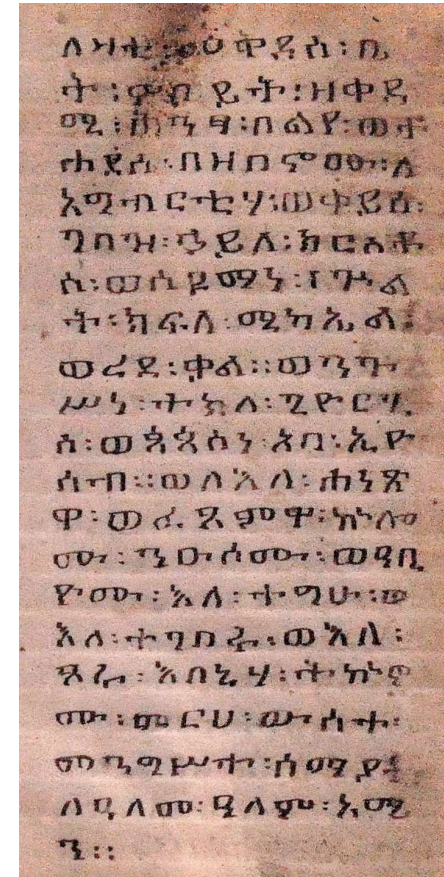 ለዛቲ፡ መቅደስ፡ ቤ
ት፡ ምክይት፡ ዘቀዳ
ሚ፡ ሕንፃ፡ በልየ፡ ወተ
ሐደሰ፡ በዘ
አግብርቲሃ፡ ወቀይሰ፡
ገባዝ፡ ኃይለ፡ ክርስቶ
ስ፡ ወሰይማነ፡
ት፡ ክፍለ፡ ሚካኤል፡
ወረደ፡ ቃል። ወንጉ
ሥነ፡ ተክለ፡ ጊዮርጊ
ስ፡ ወጳጳስነ፡ አባ፡ ኢዮ
ሳብ። ወለእለ፡ ሐነጽ
ዋ፡ ወፈጸምዋ፡ ኵሎ
ሙ፡ ንዑሶሙ፡ ወዓቢ
ዮሙ፡ እለ፡ ተግሁ፡ ወ
እለ፡ ተገብሩ፡ ወእለ፡
ጾሩ፡ እበኒሃ፡ ትኩኖ
ሙ፡ መርሀ፡ ውስተ፡
መንግሥተ፡ ሰማያት
ለዓለመ፡ ዓለም፡ አሜ
ን።